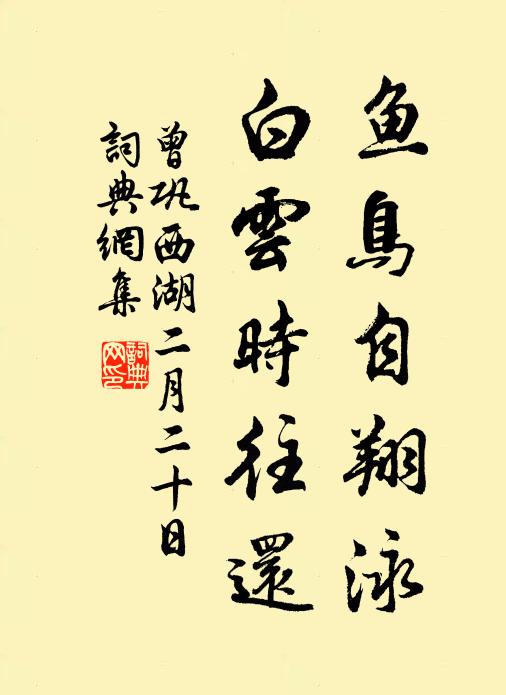 鱼鳥自翔泳
白雲時往還
曾巩西湖二月二十日
詞典網集
詞典网印